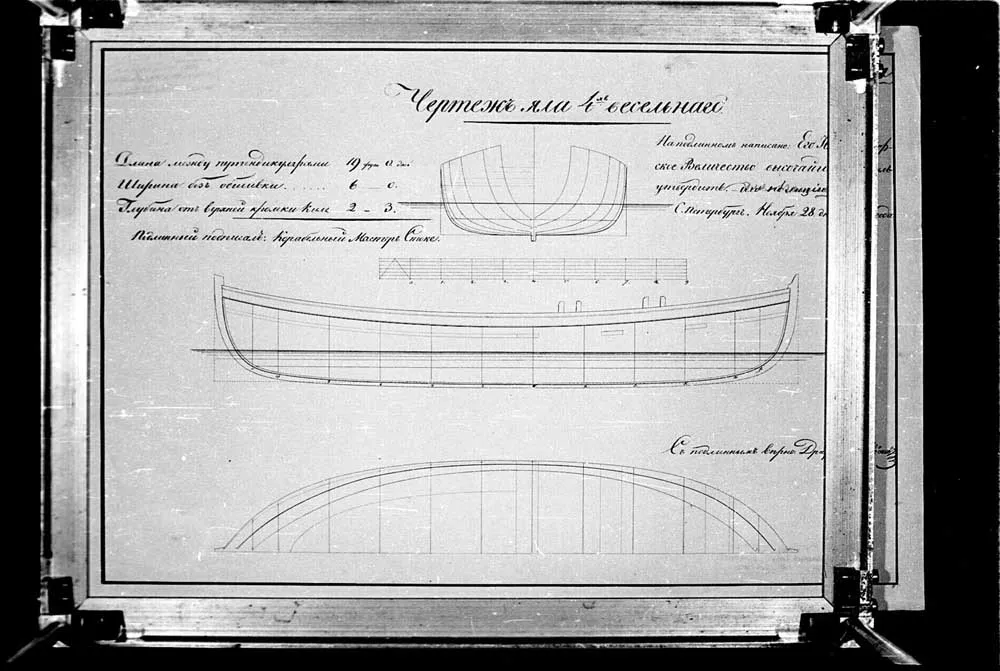 Чертежъ яла 4хъ весельнаго
Длина между перпендикулярами 19 фут. 0 дюй
Ширина безъ обшивки ...... 6 _ 0.
Глубина отъ верхней кромки киля 2 _ 3.
Подлинный подписалъ: Корабельный Мастеръ Стоке.
На подлинномъ написано: Его
ское Величество высочайше
утвердить
С. Петербургъ. Ноября 28
Съ подлиннымъ вѣрно: